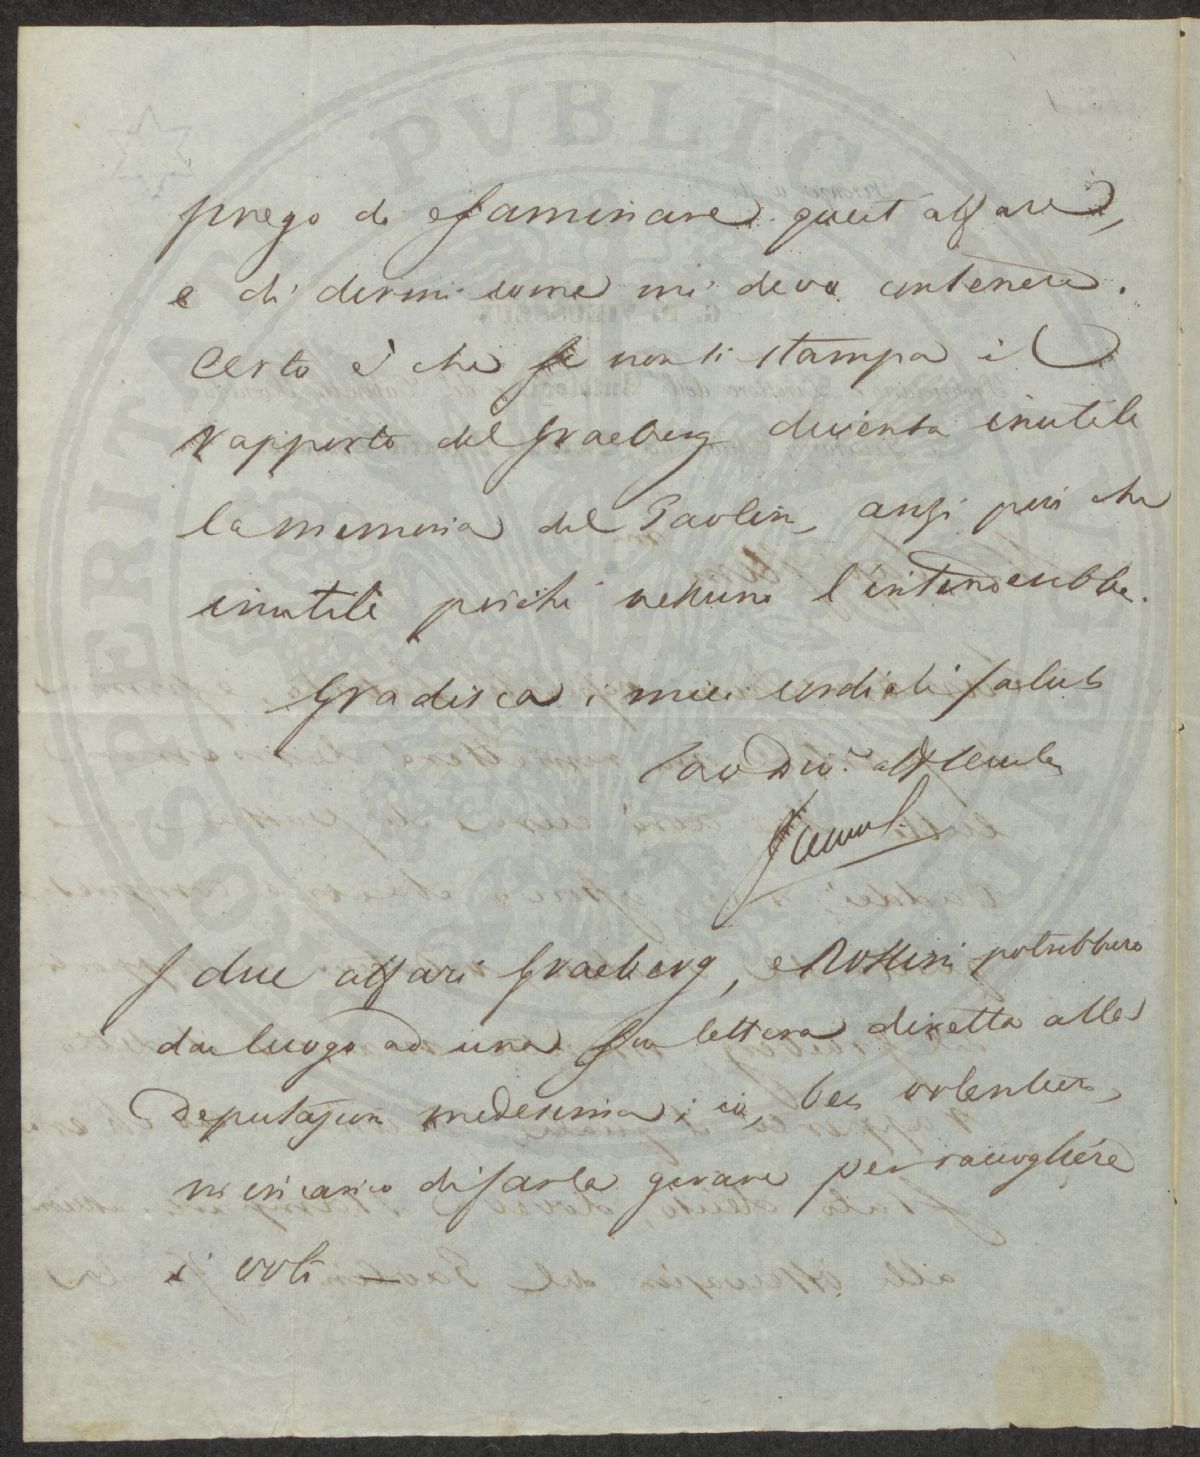 prego di esaminare quest'affare,
e di dirmi come mi devo contenere.
Certo è che se non si stampa il
rapporto del Graeberg diventa inutile
la memoria del Paolini, anzi più che
inutile perché nessuno l'intenderebbe.
Gradisca i miei cordiali saluti
Suo Dev.
I due affari Graeberg, e Rossini potrebbero
dar luogo ad una sua lettera diretta alla
Deputazion medesima; io, ben volentieri,
m'incarico di farla girare per raccogliere
i voti